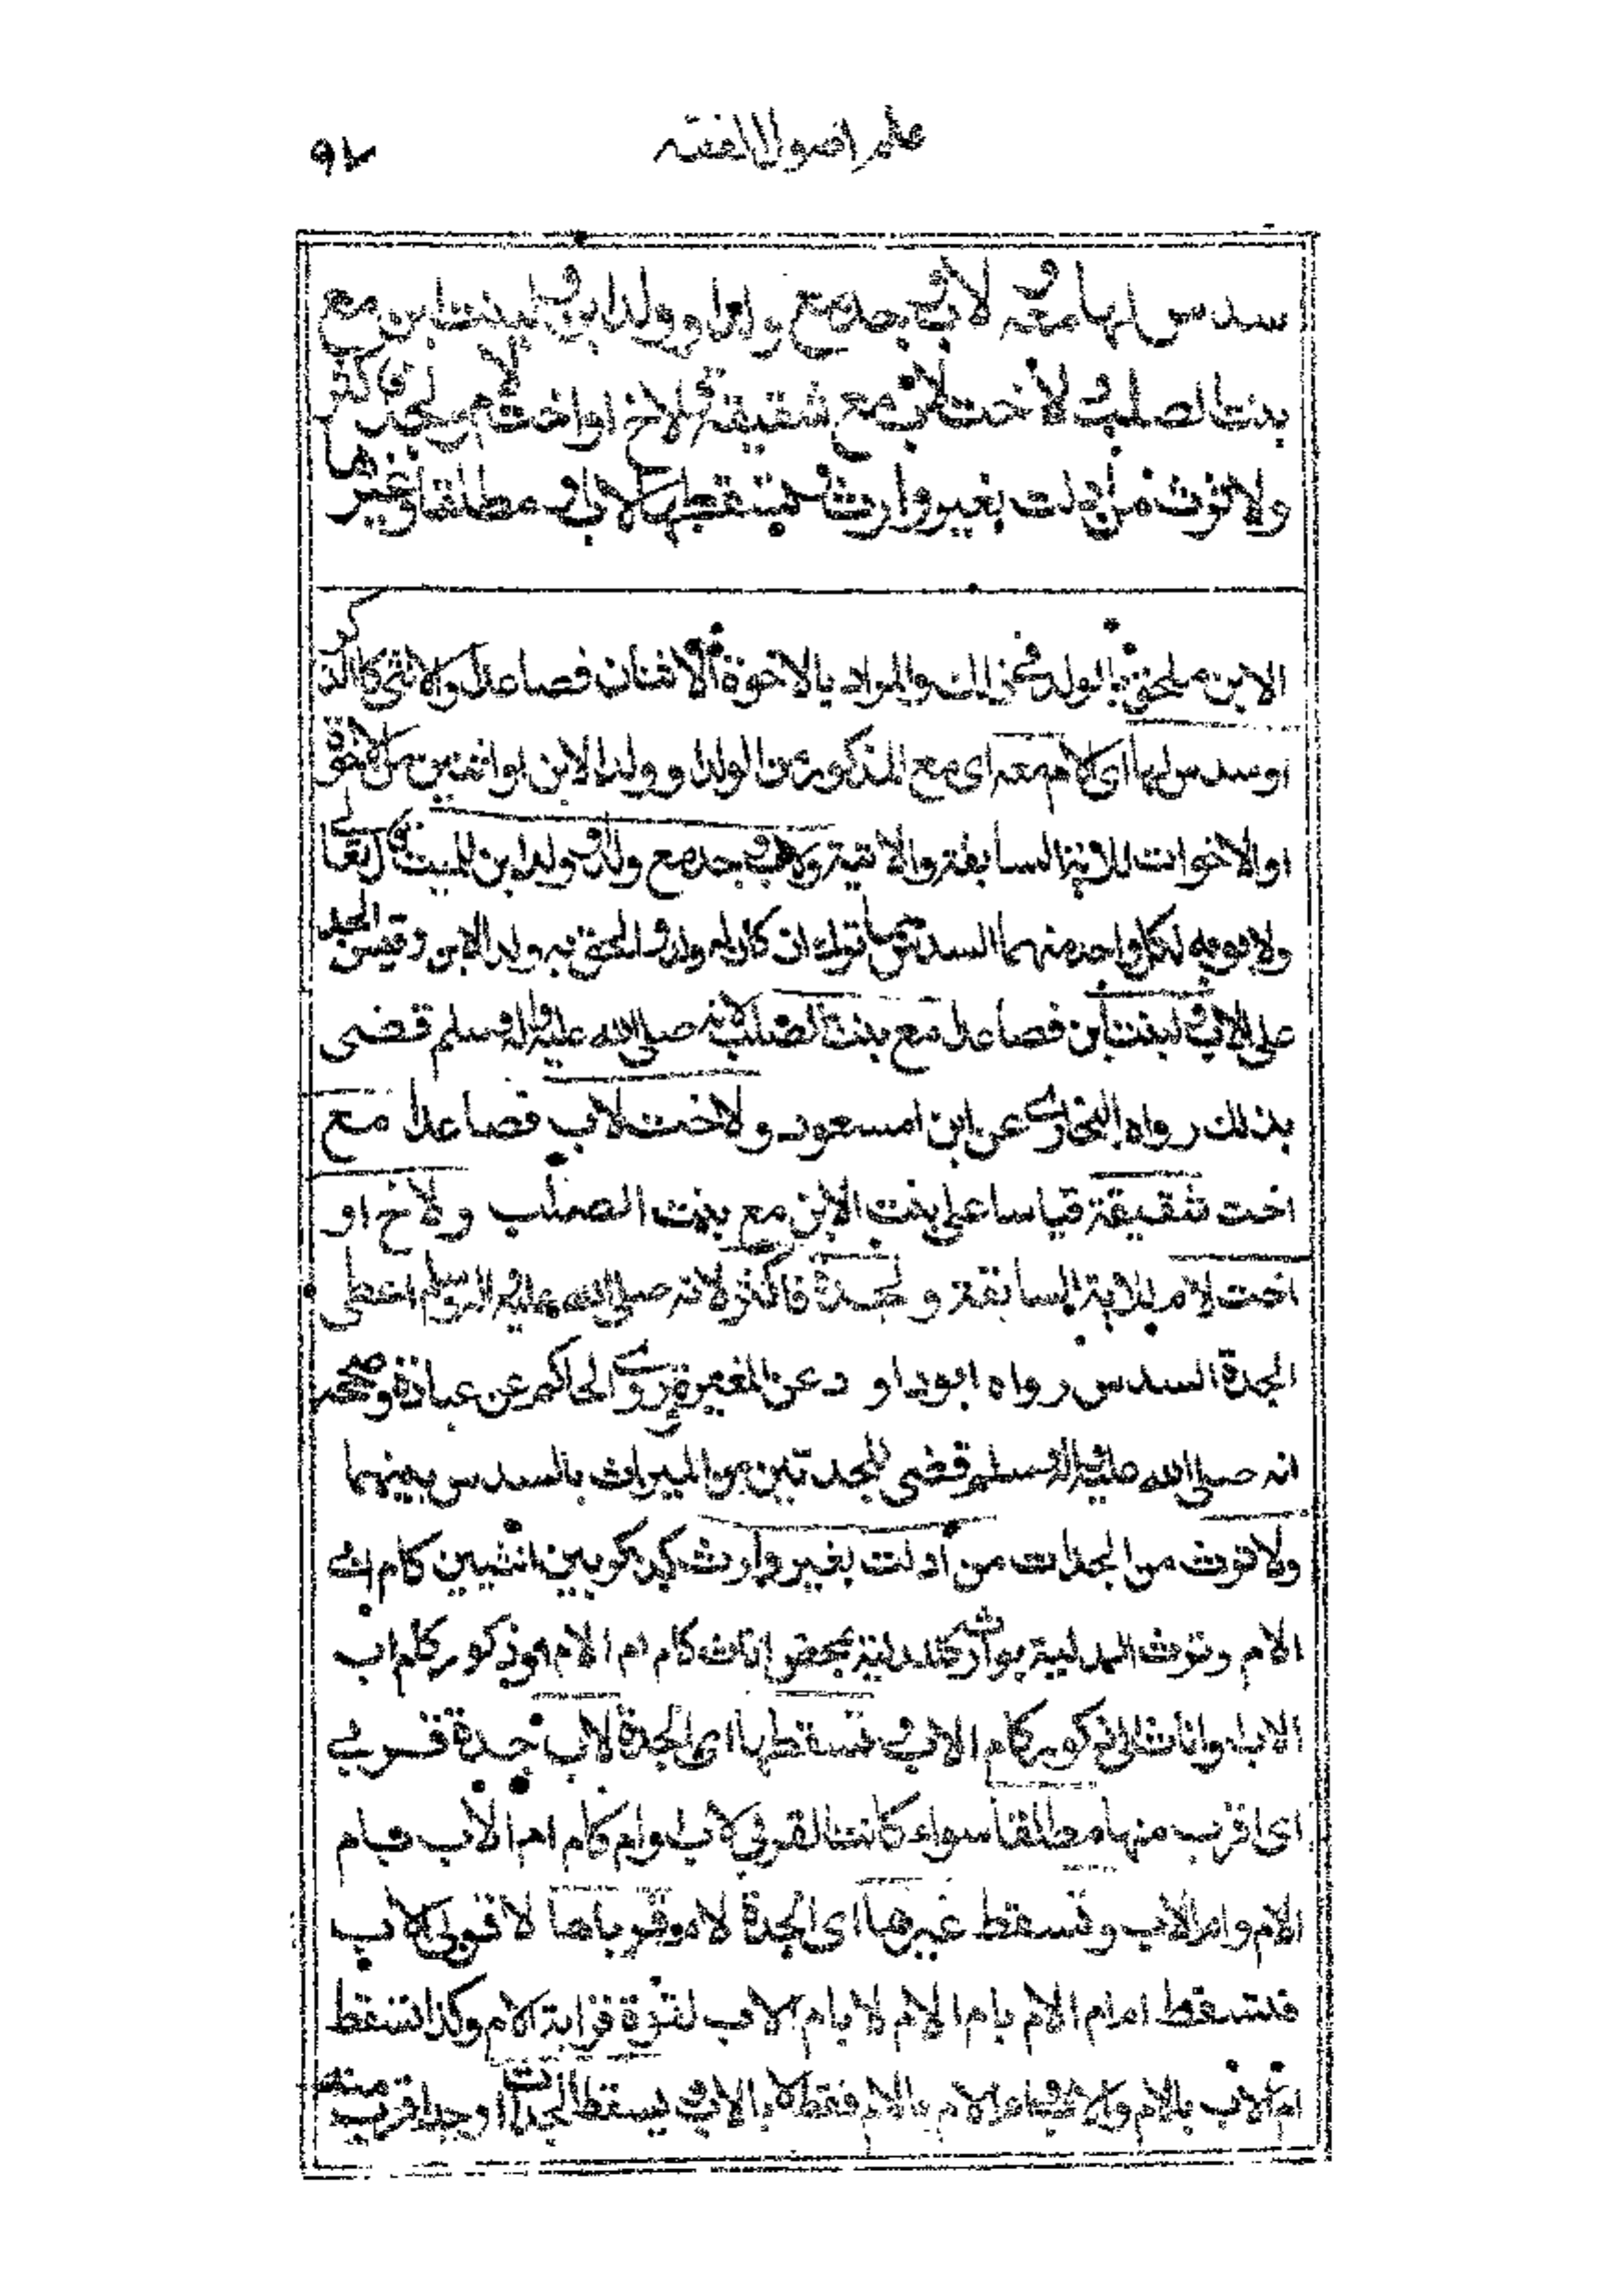 علم اصول الفقه
٩٢
سدس لها معه و لاب و جد مع ولد او ولد ابن و لبنت ابن مع
بنت الصلب و لاخت لاب مع شقيقة و لاخ او اخت لام و لجدة فاكثر
ولا ترث من ادلت بغير وارث و تسقطها لاب قربى مطلقا وغيرها
الابن ملحق بالولد في ذلك والمراد بالاخوة الاثنان فصاعدا والانثى كالذكر
او سدس لها اى لام معه اى مع المذكور من الولد و ولد الابن او اثنين من الاخوة
او الاخوات للاية السابقة والاتية و لاب و جد مع ولد و ولد ابن للميت قال تعالى
ولابويه لكل واحد منهما السدس مما ترك ان كان له ولد و الحق به ولد الابن وقيس الجد
على الاب و لبنت ابن فصاعدا مع بنت الصلب لانه صلى الله عليه واله وسلم قضى
بذلك رواه البخارى عن ابن مسعود ولاخت لاب فصاعدا مع
اخت شقيقة قياسا على بنت الابن مع بنت الصلب ولاخ او
اخت لام للاية السابقة و لجدة فاكثر لانه صلى الله عليه واله وسلم اعطى
الجدة السدس رواه ابو داود عن المغيرة وروى الحاكم عن عبادة وصححه
انه صلى الله عليه واله وسلم قضى للجدتين من الميراث بالسدس بينهما
ولا ترث من الجدات من ادلت بغير وارث كذكر بين انثيين كام ابى
الام وترث المدلية بوارث كمدلية بمحض اناث كام ام الام او ذكور كام اب
الاب او اناث الى ذكور كام ام الاب و تسقطها اى الجدة لاب جدة قربى
اى اقرب منها مطلقا سواء كانت القربى لاب او ام كام ام الاب بام
الام وام الاب وتسقط غيرها اى الجدة لام قرباها لا قربى لاب
فتسقط ام ام الام بام الام لا بام الاب لقوة قرابة الام وكذا تسقط
ام الاب بالام والاب و ام الام بالام فقط لا بالاب و يسقط الجدات اوجد اقرب منه